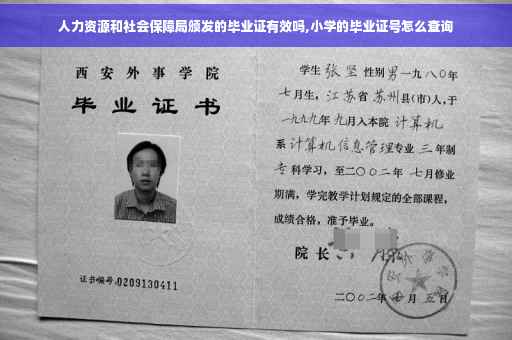 人力资源和社会保障局颁发的毕业证有效吗,小学的毕业证号怎么查询
西安外事学院
毕业证书
证书编号:0209130411
学生 张坚 性别男一九八〇年
七月生，江苏省苏州县(市)人,于
一九九九年九月入本院 计算机
系 计算机信息管理 专业 三 年制
专科学习，至二〇〇二年 七月修业
期满，学完教学计划规定的全部课程，
成绩合格，准予毕业。
院长
二〇〇二年 月五日